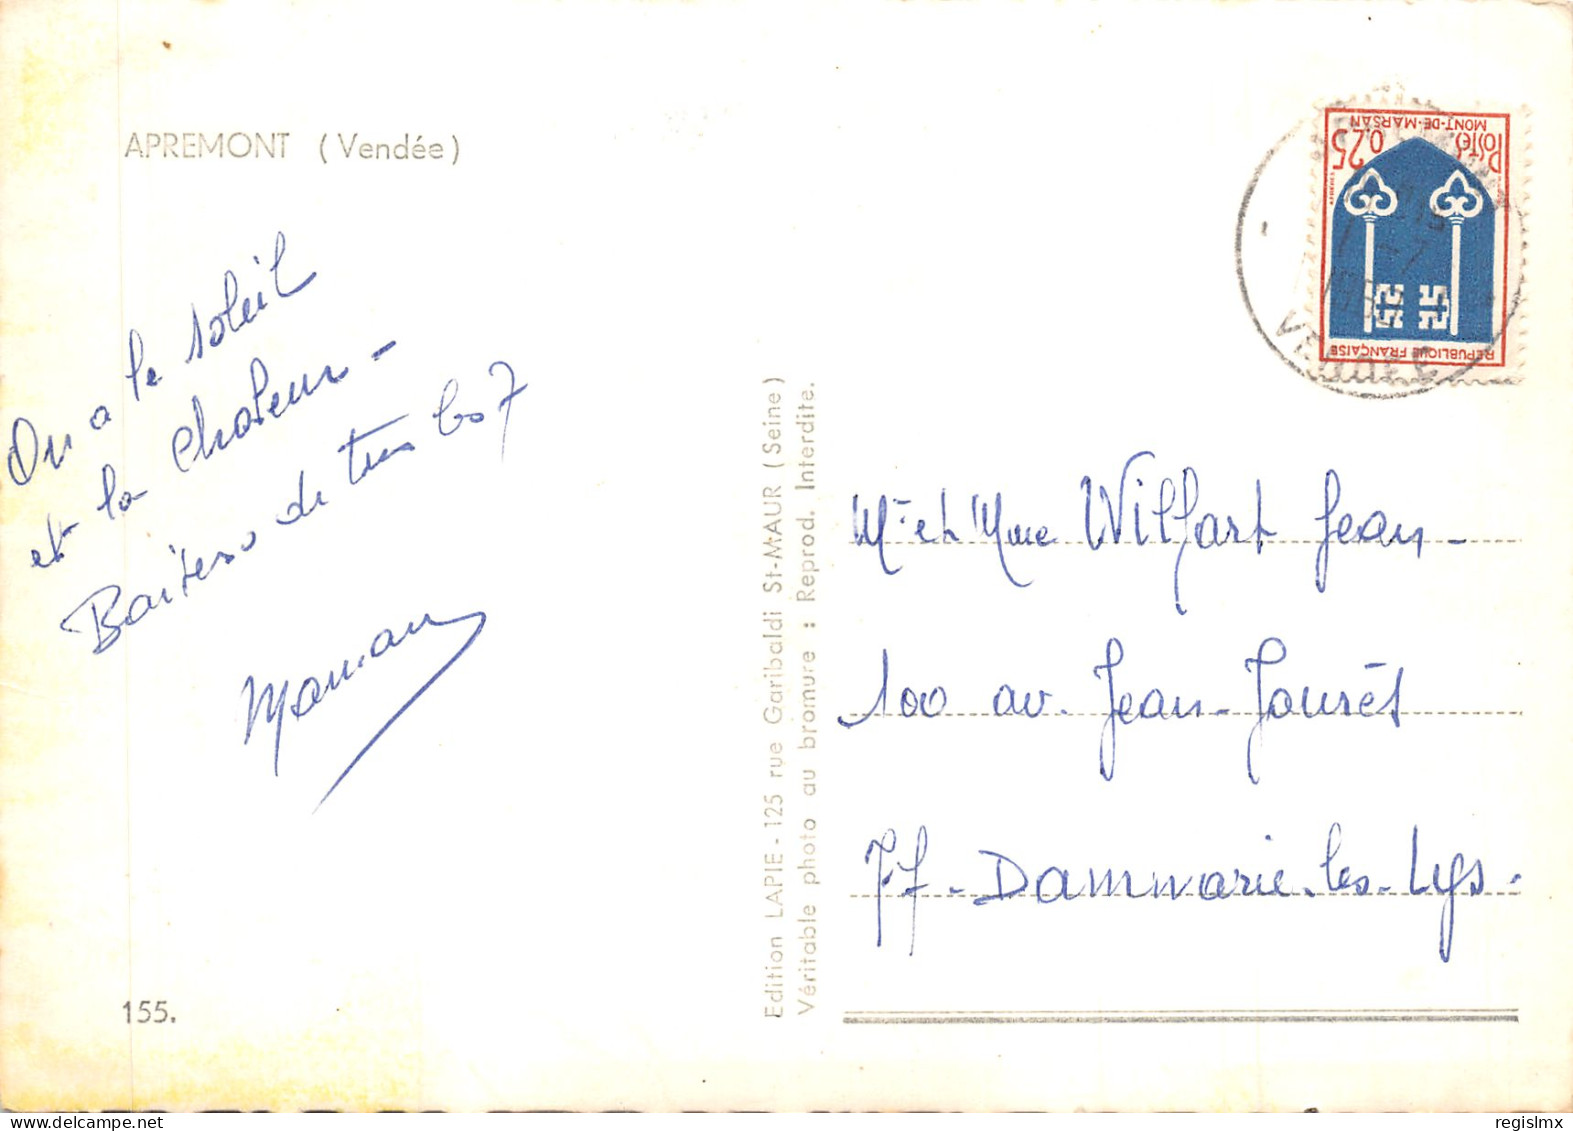 APREMONT (Vendée)
On a le soleil
et la chaleur -
Baisers de tous les 7
Maman
155.
Edition LAPIE - 125 rue Garibaldi St-MAUR (Seine)
Véritable photo au bromure : Reprod. Interdite.
POSTES
0,25
MONT-DE-MARSAN
REPUBLIQUE FRANÇAISE
VENDEE
Mr et Mme Wilfart Jean -
100 av. Jean-Jaurès
77 - Dammarie-les-Lys.
regislmx